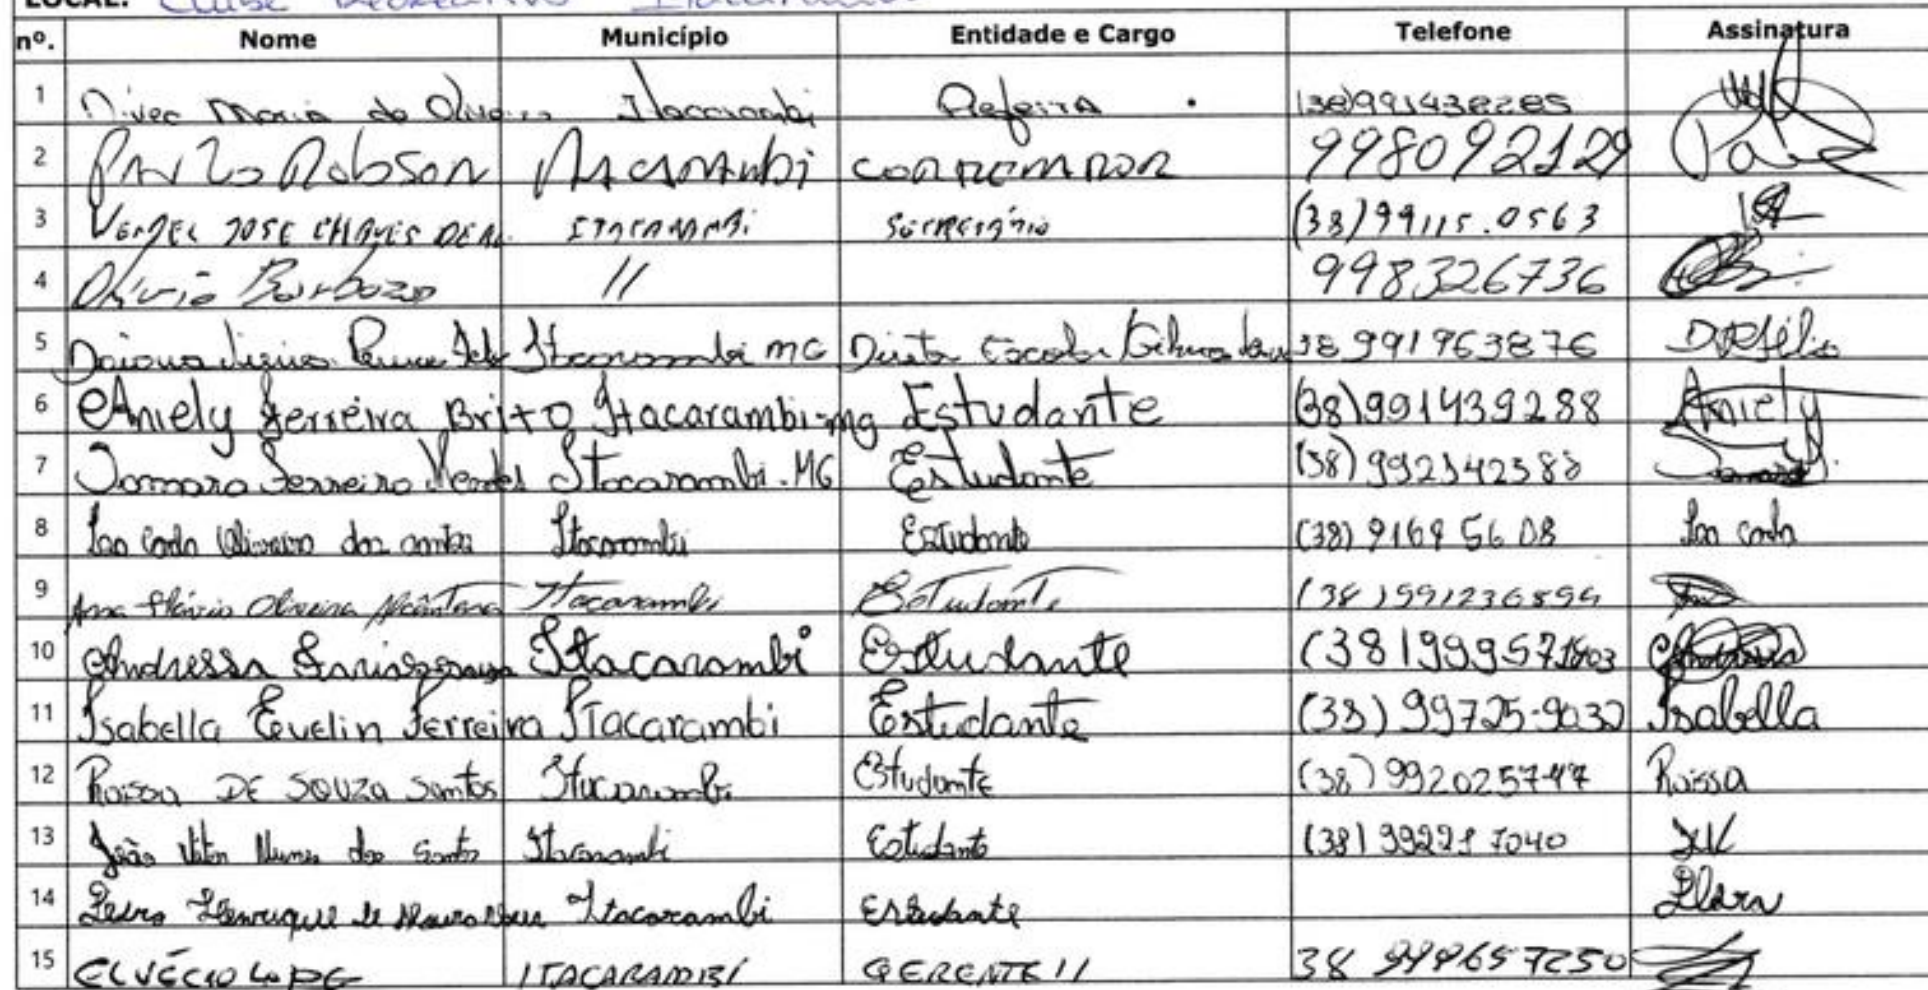 LOCAL: Clube Recreativo Itacarambi
nº. Nome Município Entidade e Cargo Telefone Assinatura
1 Nivea Maria de Oliveira Itacarambi (38)991438285
2 Paulo Robson Itacarambi 998092129
3 JOSE CHAVES ITACARAMBI Secretário (38)99115.0563
4 Olívio Barbosa 11 998326736
5 Daiana Itacarambi MG Escolar 38 991963876
6 Aniely Ferreira Brito Itacarambi-mg Estudante (38)991439288 Aniely
7 Samara Ferreira Mendes Itacarambi-MG Estudante (38) 992342388 Samara
8 Oliveira dos santos Itacarambi Estudante (38) 9169 56 08
9 Ana Flávia Oliveira Alcântara Itacarambi Estudante (38)991236894
10 Andressa Itacarambi Estudante
11 Isabella Evelin Ferreira Itacarambi Estudante (38) 99725-9032 Isabella
12 Raissa DE SOUZA Santos Itacarambi Estudante (38) 992025747 Raissa
13 João Vitor Nunes dos Santos Itacarambi Estudante (38) 992217040
14 Pedro Henrique de Itacarambi Estudante
15 ELVÉCIO LOPE ITACARAMBI GERENTE 38